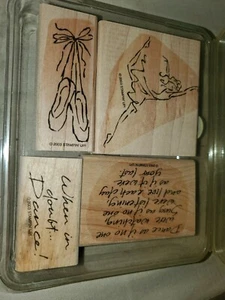 When in
doubt...
Dance!
Dance as if no one
were watching,
Sing as if no one
were listening,
and live each day
as if it were
your last.